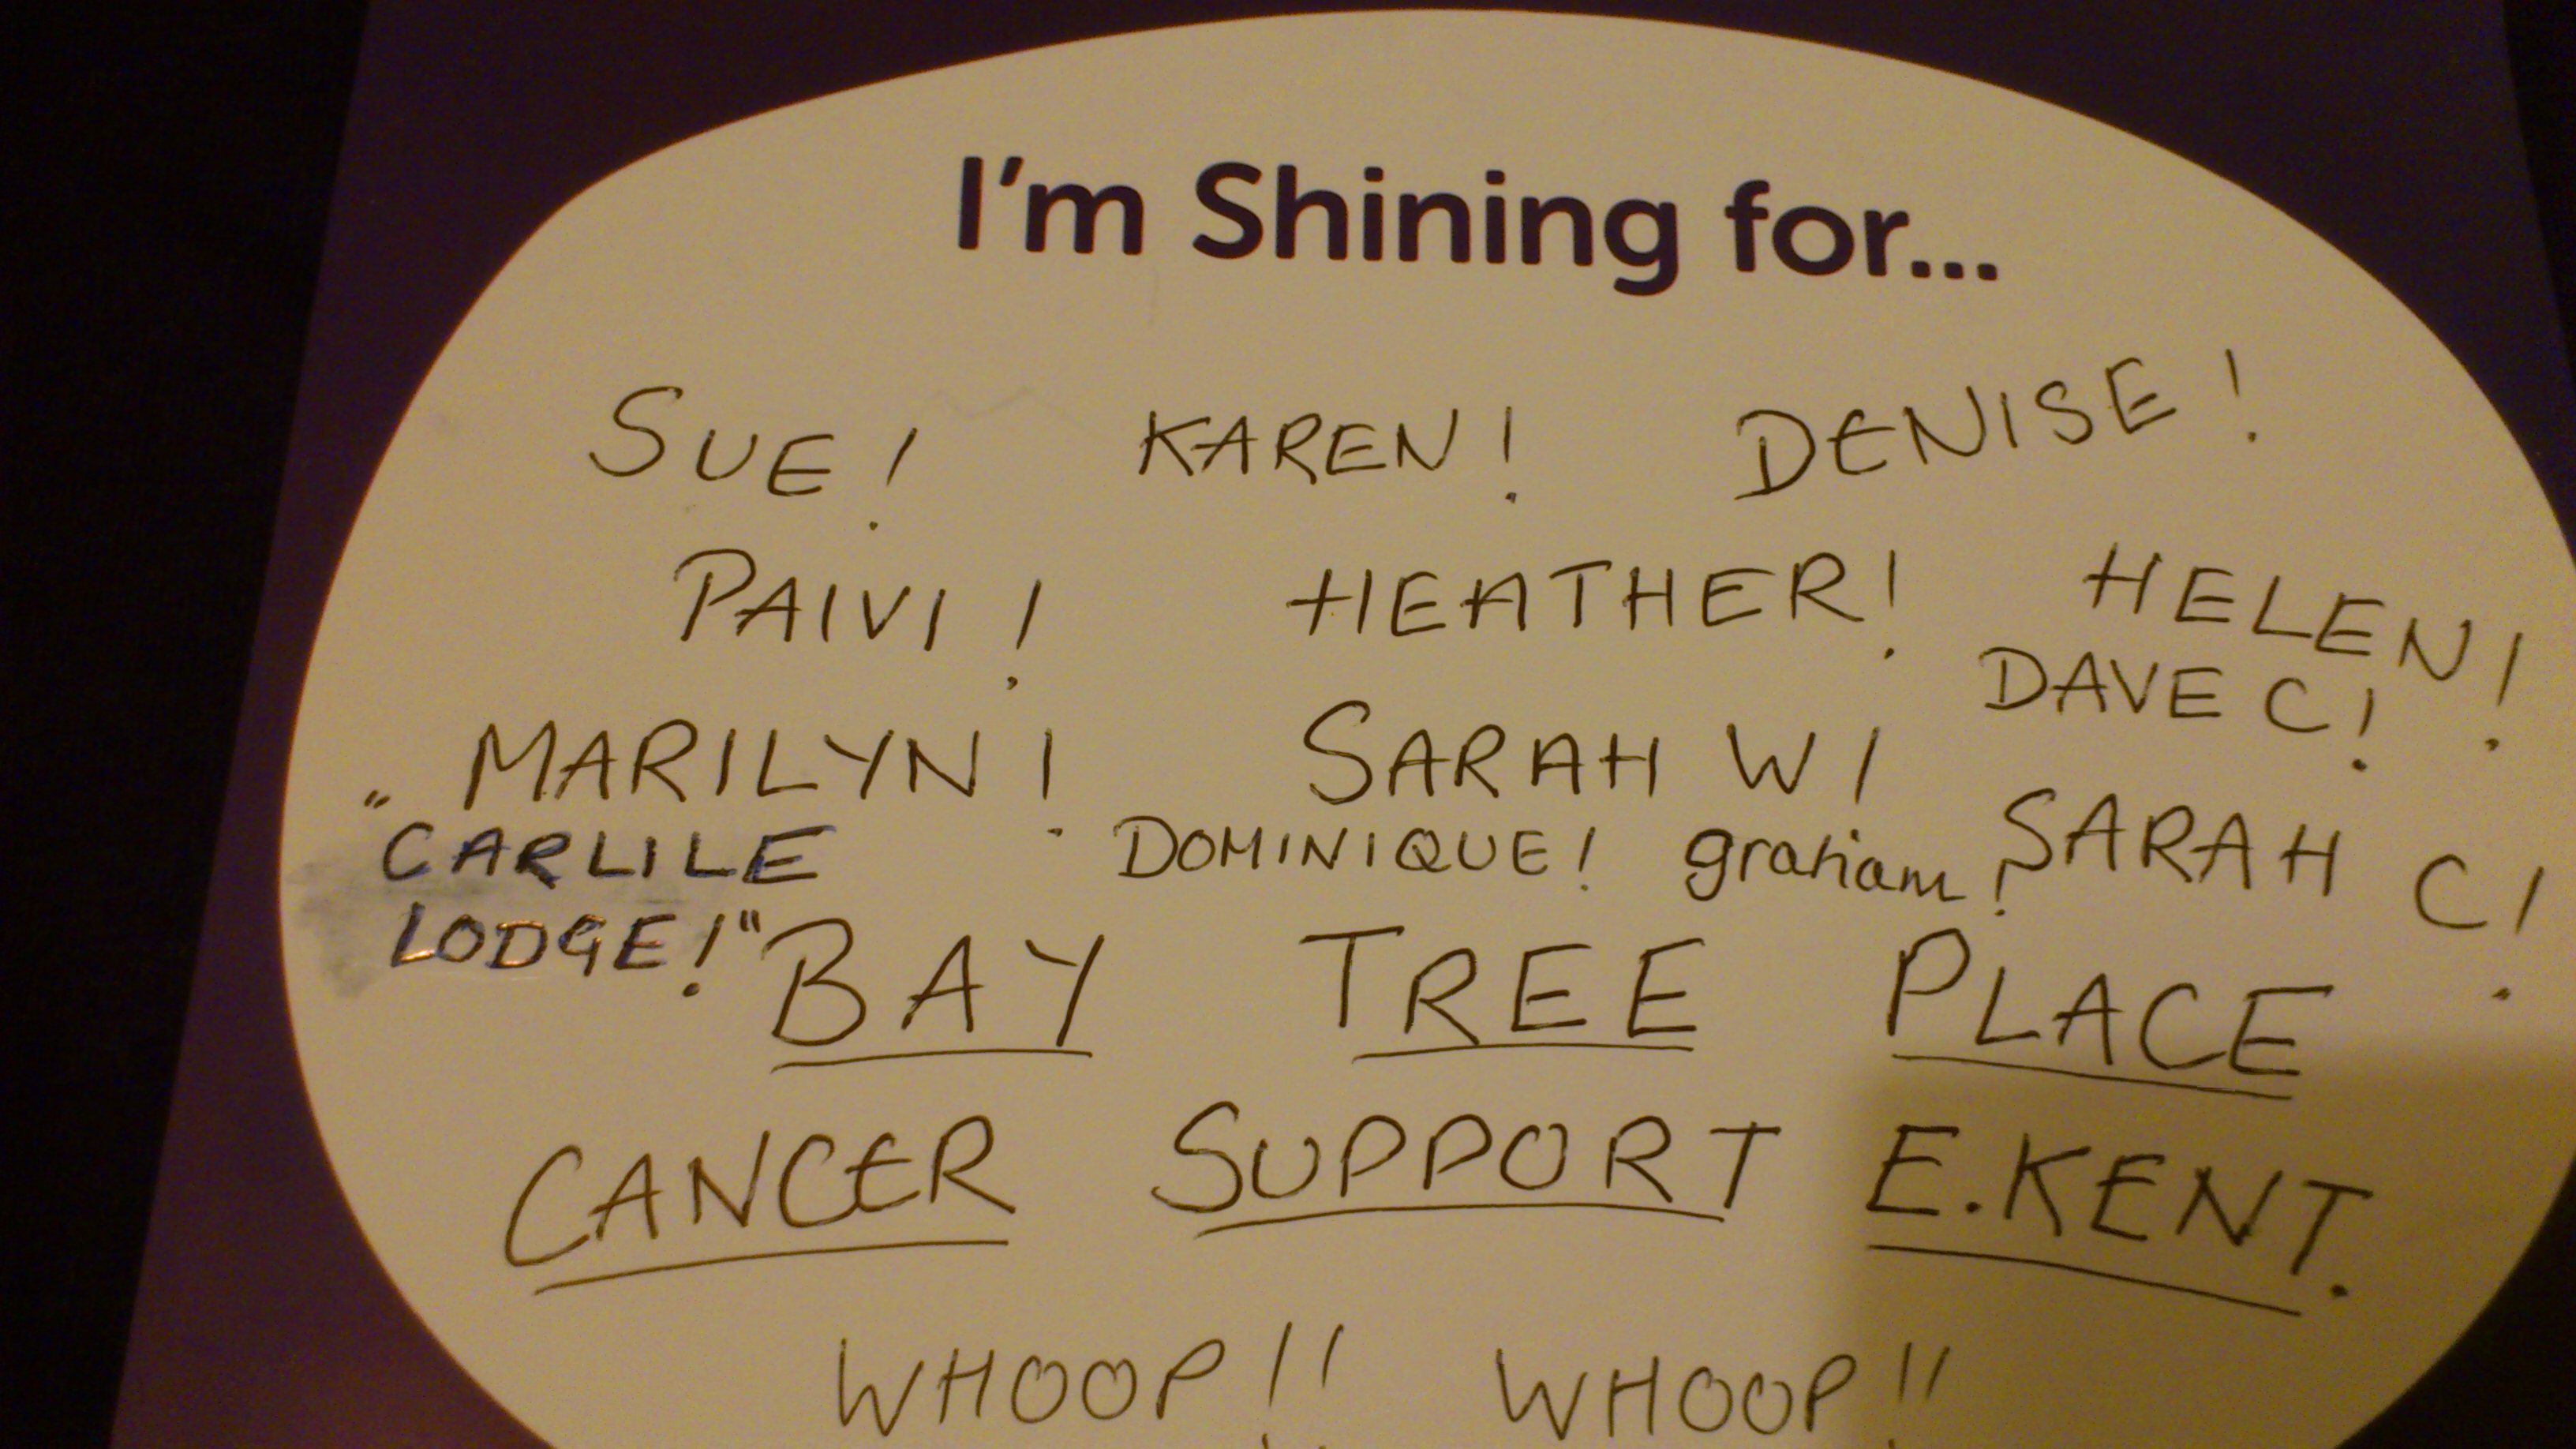 I'm Shining for...
SUE! KAREN! DENISE!
PAIVI! HEATHER! HELEN!
DAVE C!
MARILYN! SARAH W!
"CARLILE LODGE!"
DOMINIQUE! graham! SARAH C!
BAY TREE PLACE
CANCER SUPPORT E.KENT.
WHOOP!! WHOOP!!